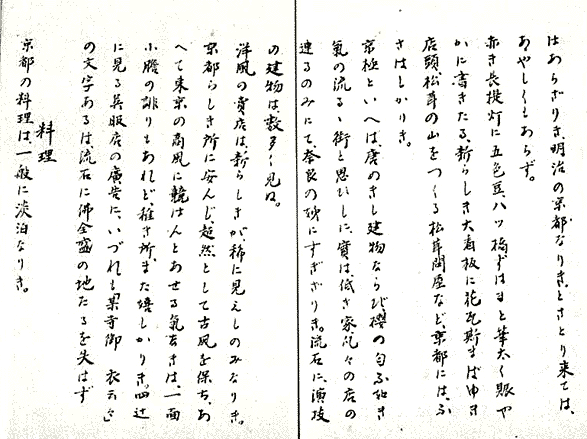 はあらざりき、明治の京都なりき。とさとり来ては、
あやしくもあらず。
赤き長提灯に五色豆、八ッ橋ずはよと筆太く賑や
かに書きたる、新らしき大看板に花瓦斯まばゆき
店頭松茸の山をつくる松茸問屋など、京都には、ふ
さはしかりき。
京極といへば、唐めきし建物ならび櫻の匂ふ如き
氣の流るゝ街と思ひしに、實は、低き家凡々の店の
連るのみにて、奈良の砂にすぎざりき。流石に、演技
の建物は、数多く見ゆ。
洋風の賣店は、新らしきが稀に見えしのみなりき。
京都らしき所に安んじ、超然として古風を保ち、あ
へて東京の商風に競はんとあせる氣なきは、一面
小膽の誹りもあれど、雅き所また嬉しかりき。四辻
に見る呉服店の廣告に、いづれも某寺御 衣
の文字あるは、流石に佛全盛の地たるを失はず
料理
京都の料理は、一般に淡泊なりき。